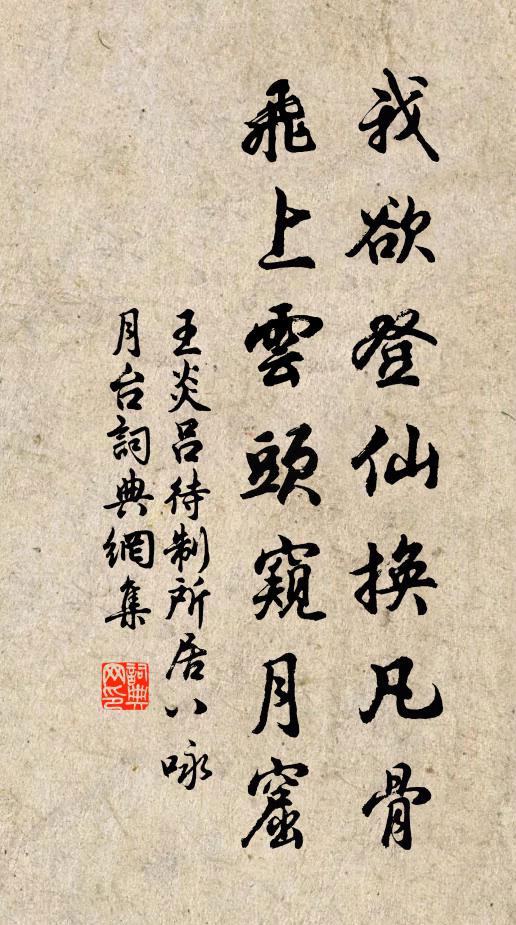 我欲登仙換凡骨
飛上雲頭窺月窟
王炎呂待制所居八咏
月台詞典網集
詞典網印